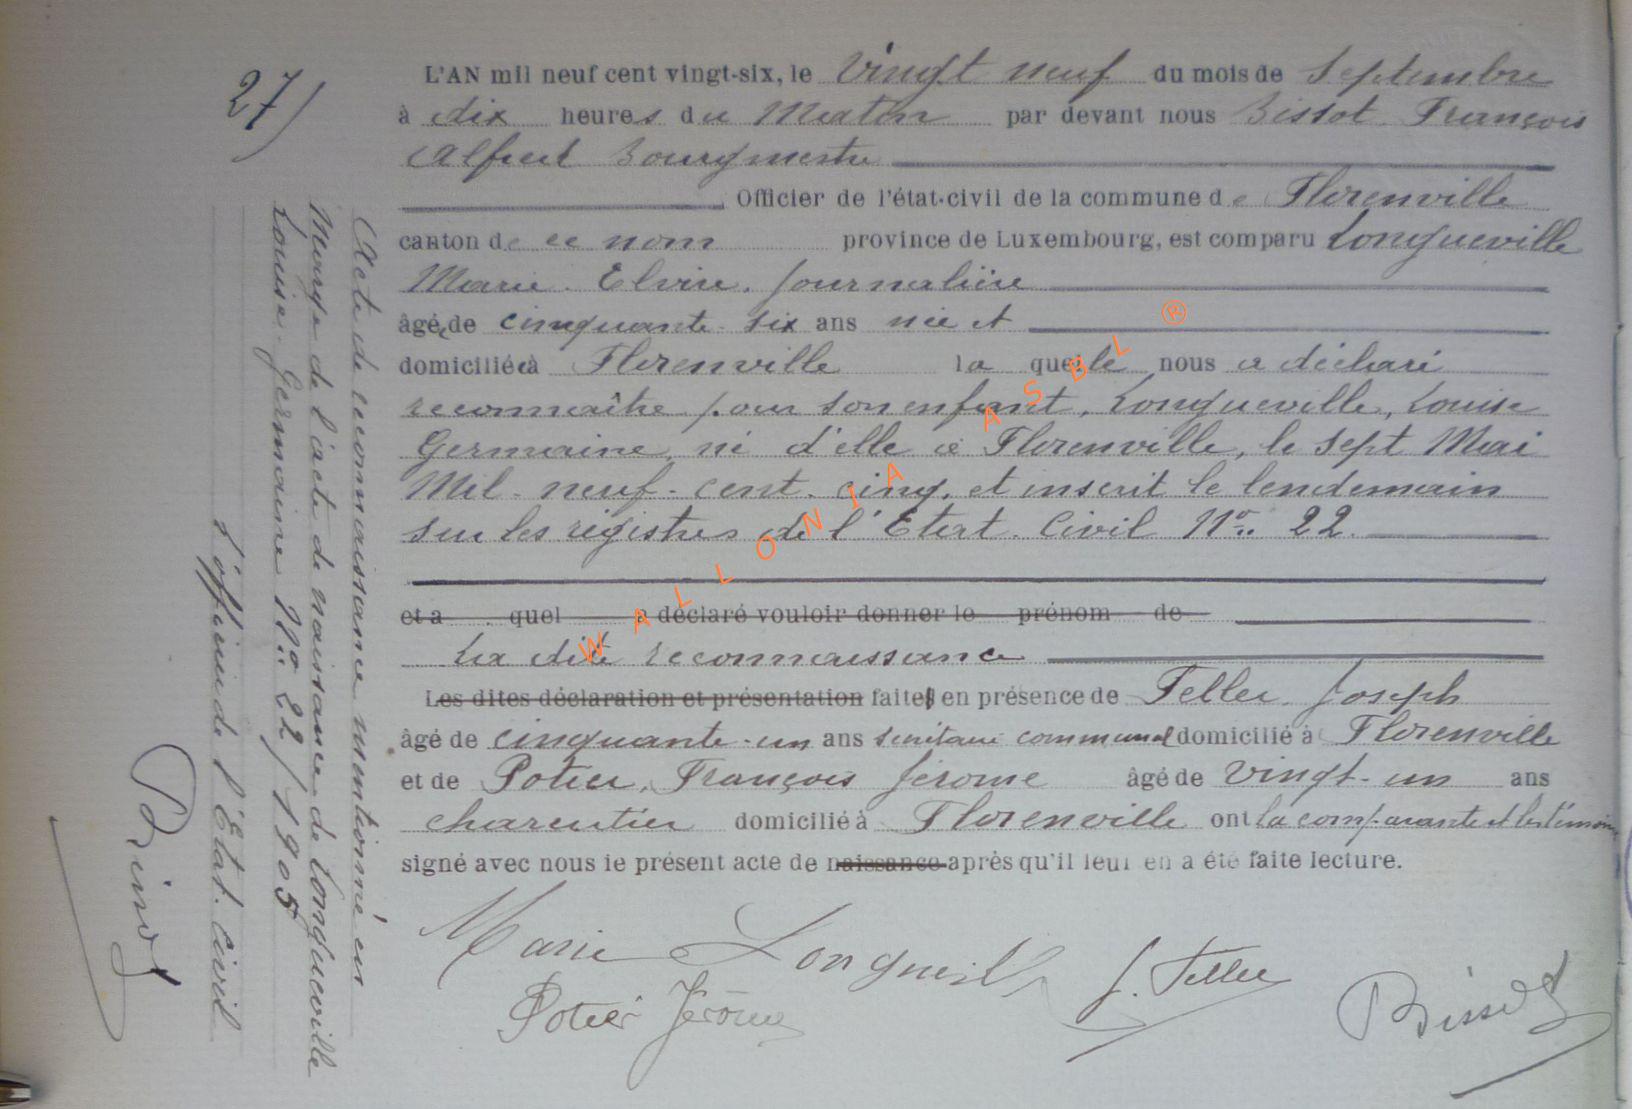 27)
L'AN mil neuf cent vingt-six, le Vingt neuf du mois de Septembre
à dix heures du Matin par devant nous Bissot François
Alfred Bourgmestre
Officier de l'état-civil de la commune de Florenville
canton de ce nom province de Luxembourg, est comparu Longueville
Marie. Elvire. Journalière
âgée de cinquante. six ans née et
domiciliée à Florenville la quelle nous a déclaré
reconnaître pour son enfant, Longueville, Louise
Germaine, né d'elle à Florenville, le sept Mai
Mil - neuf - cent - cinq, et inscrit le lendemain
sur les régistres de l'Etat. Civil No 22.
et a quel a déclaré vouloir donner le prénom de
La dite reconnaissance
Les dites déclaration et présentation faites en présence de Feller. Joseph
âgé de cinquante-un ans secrétaire communal domicilié à Florenville
et de Potier, François Jérome âgé de Vingt-un ans
charcutier domicilié à Florenville ont la comparante et les témoins
signé avec nous le présent acte de naissance après qu'il leur en a été faite lecture.
Marie Longuevill
J. Feller
Potier Jérome
Bissot
Acte de reconnaissance mentionné en
Marge de l'acte de naissance de Longueville
Louise - Germaine No 22/1905
L'officier de l'Etat. Civil
WALLONIA ASBL ®